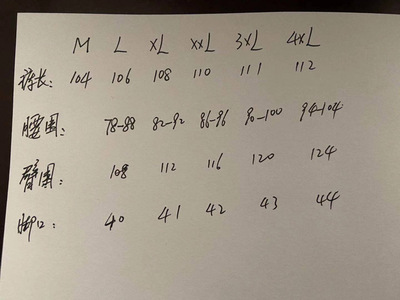 M L XL XXL 3XL 4XL
裤长: 104 106 108 110 111 112
腰围: 78-88 82-92 86-96 90-100 94-104
臀围: 108 112 116 120 124
脚口: 40 41 42 43 44